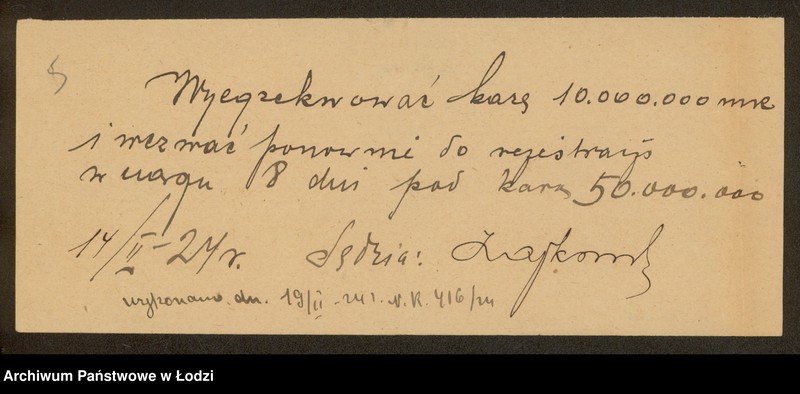 5
Wyegzekwować karę 10.000.000 mk
i wezwać ponownie do rejestracji
w ciągu 8 dni pod karą 50.000.000
14/II-24 r. Sędzia:
wykonano dn. 19/II-24 r. N.R. 416/24
Archiwum Państwowe w Łodzi